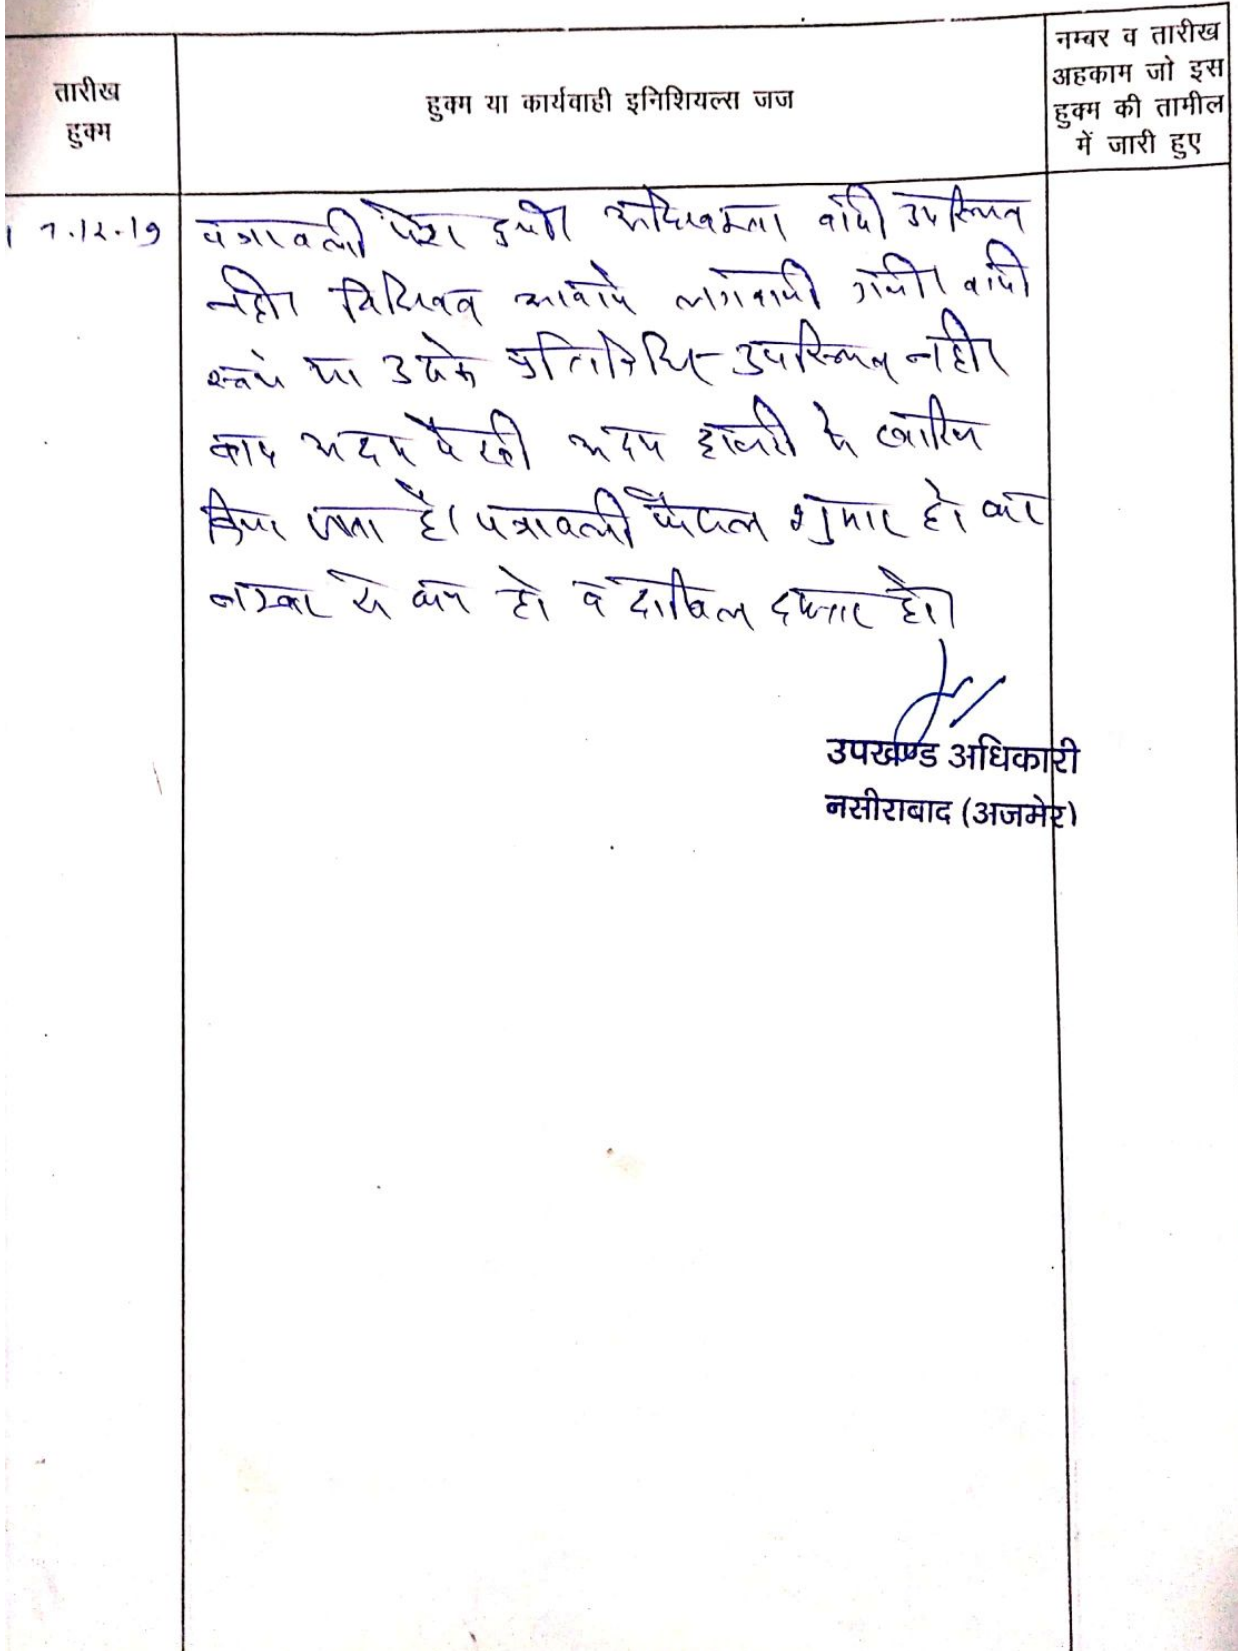 तारीख
हुक्म
हुक्म या कार्यवाही इनिशियल्स जज
नम्बर व तारीख
अहकाम जो इस
हुक्म की तामील
में जारी हुए
पत्रावली पेश हुयी। अधिवक्ता वादी उपस्थित
नहीं। विधिवत आवाजे लगवायी गयी। वादी
स्वयं या उसके प्रतिनिधि उपस्थित नहीं।
वाद अदम पैरवी अदम हाजरी में खारिज
किया जाता है। पत्रावली फैसल शुमार हो कर
नम्बर से कम हो व दाखिल दफ्तर हो।
उपखण्ड अधिकारी
नसीराबाद (अजमेर)